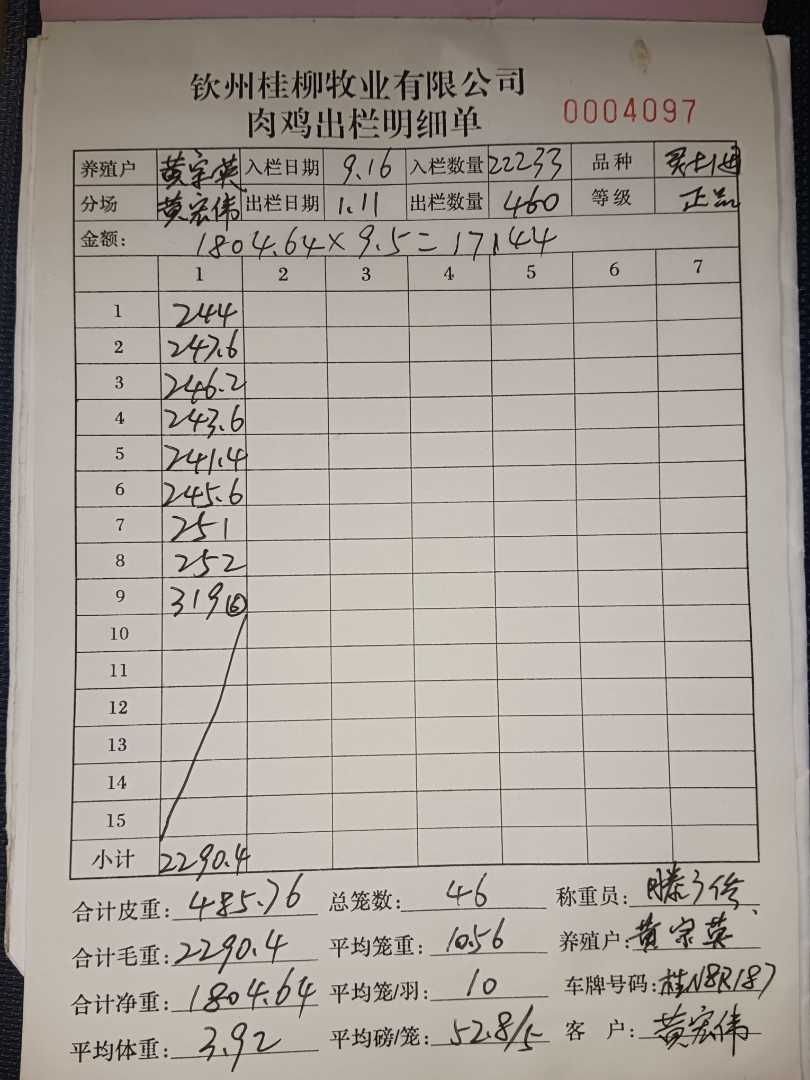 钦州桂柳牧业有限公司
肉鸡出栏明细单 0004097
养殖户 黄宗英 入栏日期 9.16 入栏数量 22233 品种
分场 黄宏伟 出栏日期 1.11 出栏数量 460 等级 正品
金额: 1804.64×9.5=17144
1 2 3 4 5 6 7
1 244
2 247.6
3 246.2
4 243.6
5 241.4
6 245.6
7 251
8 252
9 319⑥
10
11
12
13
14
15
小计 2290.4
合计皮重: 485.76 总笼数: 46 称重员: 滕
合计毛重: 2290.4 平均笼重: 10.56 养殖户: 黄宗英
合计净重: 1804.64 平均笼/羽: 10 车牌号码: 桂N8R187
平均体重: 3.92 平均磅/笼: 52.8/5 客 户: 黄宏伟